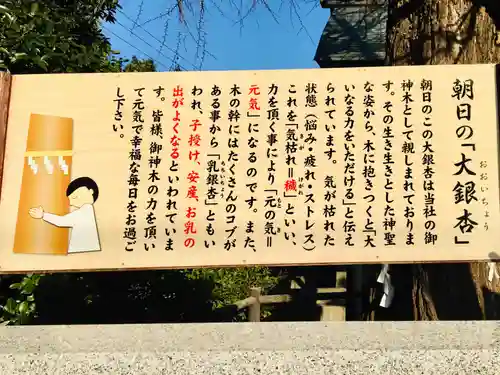 朝日の「大銀杏」
おおいちょう
朝日のこの大銀杏は当社の御
神木として親しまれておりま
す。その生き生きとした神聖
な姿から、木に抱きつくと「大
いなる力をいただける」と伝え
られています。気が枯れた
状態（悩み・疲れ・ストレス）
これを「気枯れ＝穢」といい、
力を頂く事により「元の気＝
元気」になるのです。また、
木の幹にはたくさんのコブが
ある事から「乳銀杏」ともい
われ、子授け、安産、お乳の
出がよくなるといわれていま
す。皆様、御神木の力を頂い
て元気で幸福な毎日をお過ご
し下さい。